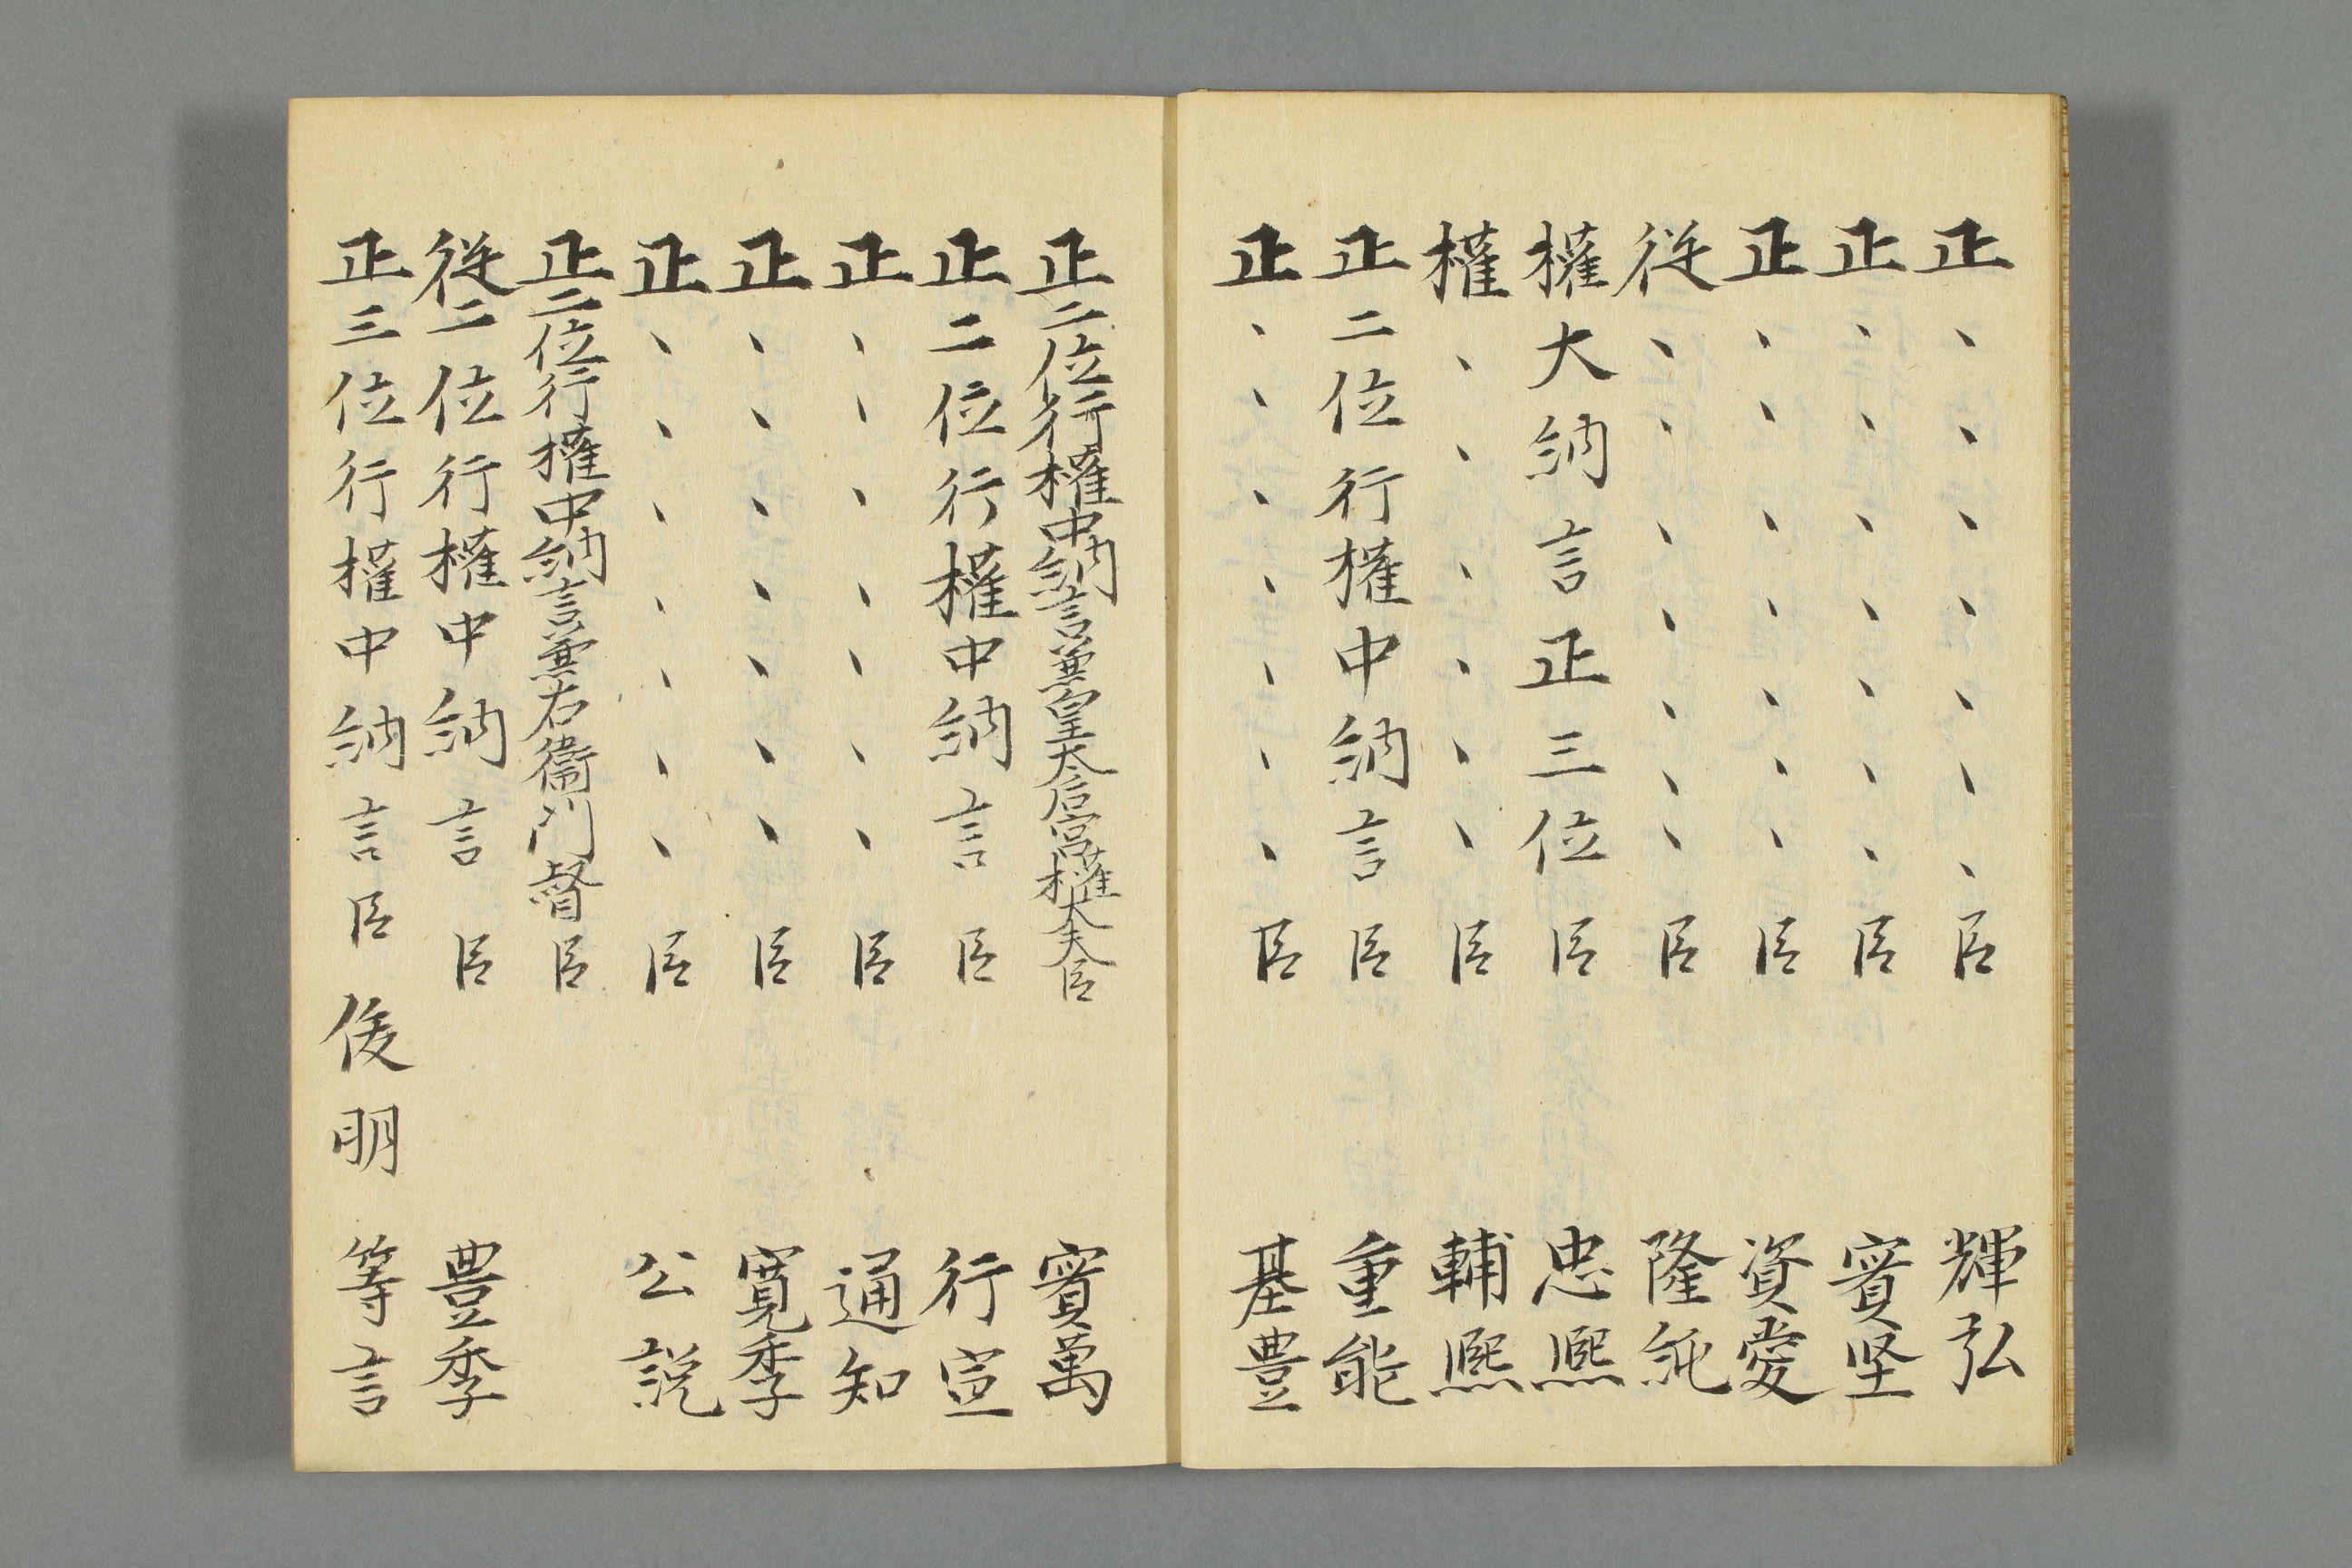 正、、、、、、、臣 輝弘
正、、、、、、、臣 實堅
正、、、、、、、臣 資愛
従、、、、、、、臣 隆純
權大納言正三位臣 忠熈
權、、、、、、臣 輔熈
正二位行權中納言臣 重能
正、、、、、、、臣 基豊
正二位行權中納言兼皇太后宮權大夫臣 實萬
正二位行權中納言臣 行宣
正、、、、、、、臣 通知
正、、、、、、、臣 寛季
正、、、、、、、臣 公説
正二位行權中納言兼右衛門督臣
従二位行權中納言臣 豊季
正三位行權中納言臣俊明等言